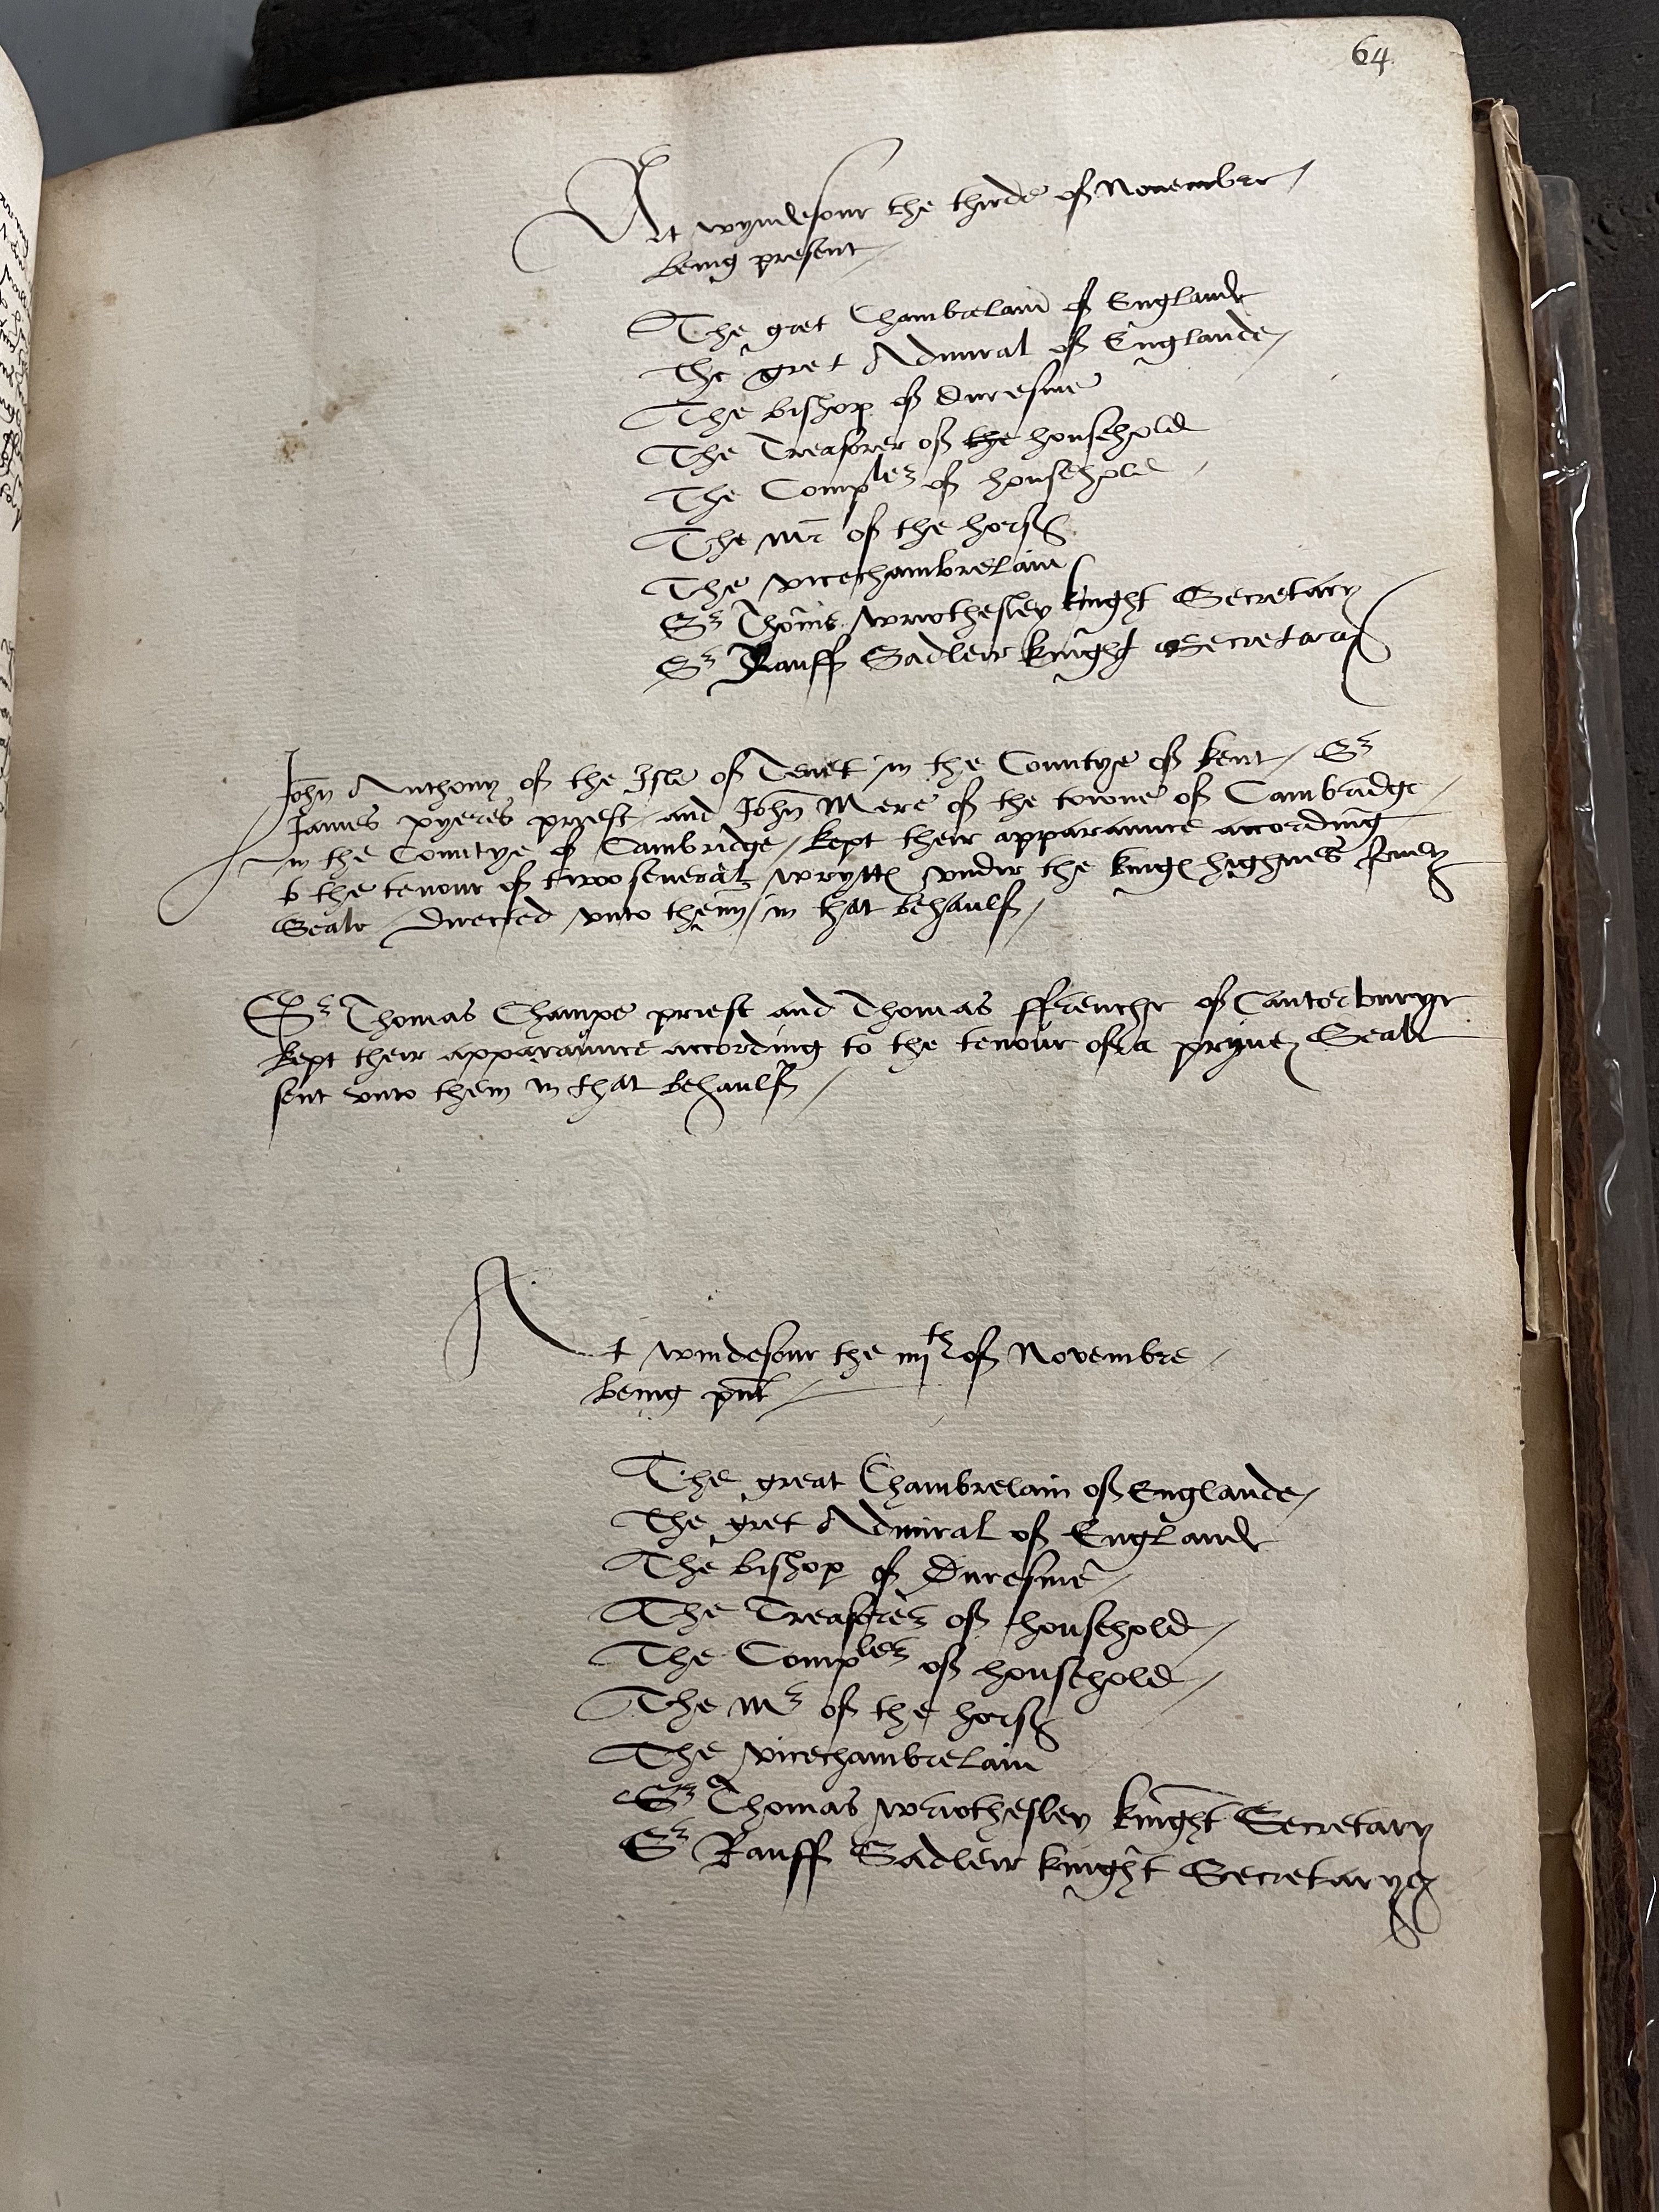 64
At wyndesour the thirde of November
being present
The gret Chambrelain of Englande
The gret Admiral of Englande
The bishop of Duresme
The Treasorer of the household
The Comples of household
The Mr of the horse
The vicechambrelain
Sr Thoms Wriothesley knight Secretary
Sr Rauff Sadleir knight Secretary
John Anthony of the Isle of Tenet in the Countye of kent / Sr
James pyeres pryest and John Mere of the towne of Cambridge
in the Countye of Cambridge / kept their apparaunce according
to the tenour of twoo several wryttes under the kinges highnes privey
Seale directed unto them / in that behaulf /
Sr Thomas Champe priest and Thomas ffrenche of Cantorburye
kept their apparaunce according to the tenour of a pryvey Seale
sent unto them in that behaulf /
At windesour the iiijth of Novembre
being pnt
The great Chambrelain of Englande
The gret Admiral of Englande
The bishop of Duresme
The Treasorer of household
The Comples of household
The Mr of the horse
The vicechambrelain
Sr Thomas Wriothesley knight Secretary
Sr Rauff Sadleir knight Secretarye